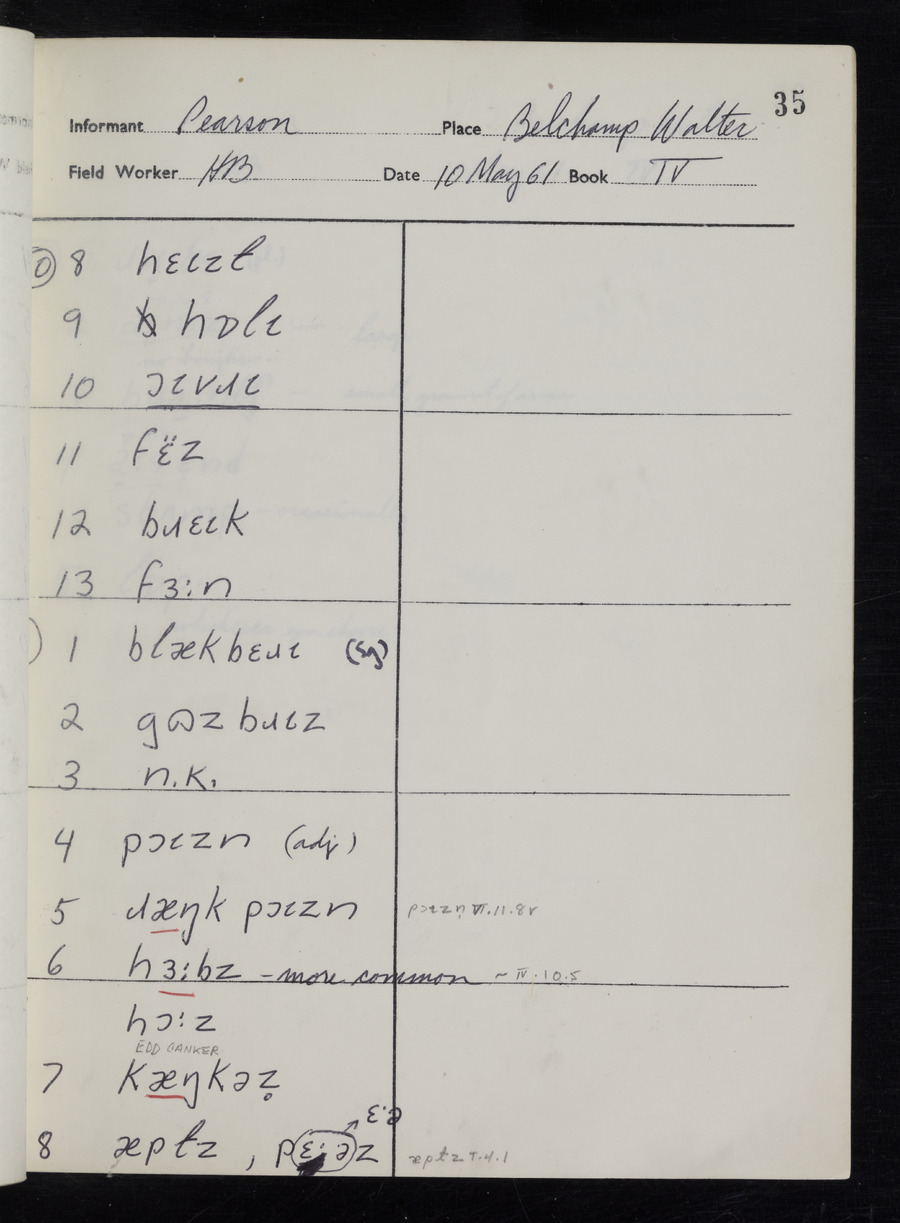 35
Informant Pearson Place Belchamp Walter
Field Worker HB Date 10 May 61 Book IV
⑩ 8 hɛɩzt
9 hɒlɩ
10 ɔɩvɹɩ
11 fɛ̈z
12 bɹɛɩk
13 fɜ:n
) 1 blækbɛɹɩ (sg)
2 gɷzbɹɩz
3 n.k.
4 pɔɩzn (adj)
5 ɹæŋk pɔɩzn pɔɩzn̩ VI.11.8v
6 hɜ:bz – more common ~ IV.10.5
hɔ:z
EDD CANKER
7 kæŋkəz̥
ɛ:ə
8 æptz , pɛ:əz æptz V.4.1